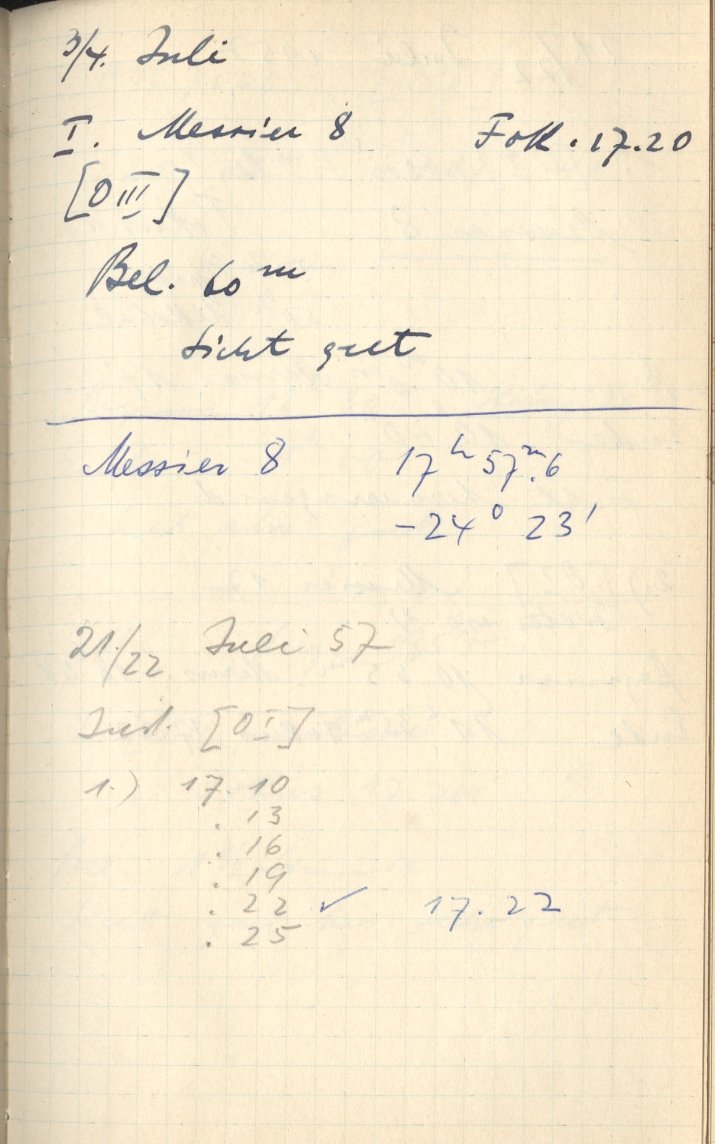 3/4. Juli
I. Messier 8 Fok. 17.20
[O III]
Bel. 60 m
Sicht gut
Messier 8 17 h 57 m.6
-24° 23'
21/22 Juli 57
[O I]
1.) 17.10
. 13
. 16
. 19
. 22 ✓ 17.22
. 25